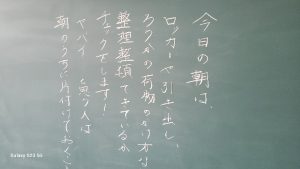 今日の朝は、
ロッカーや引き出し、
ろうかの荷物のかけ方など
整理整頓できているか
チェックします!
ヤバイ と思う人は
朝のうちに片付けておくこと
Galaxy S23 5G